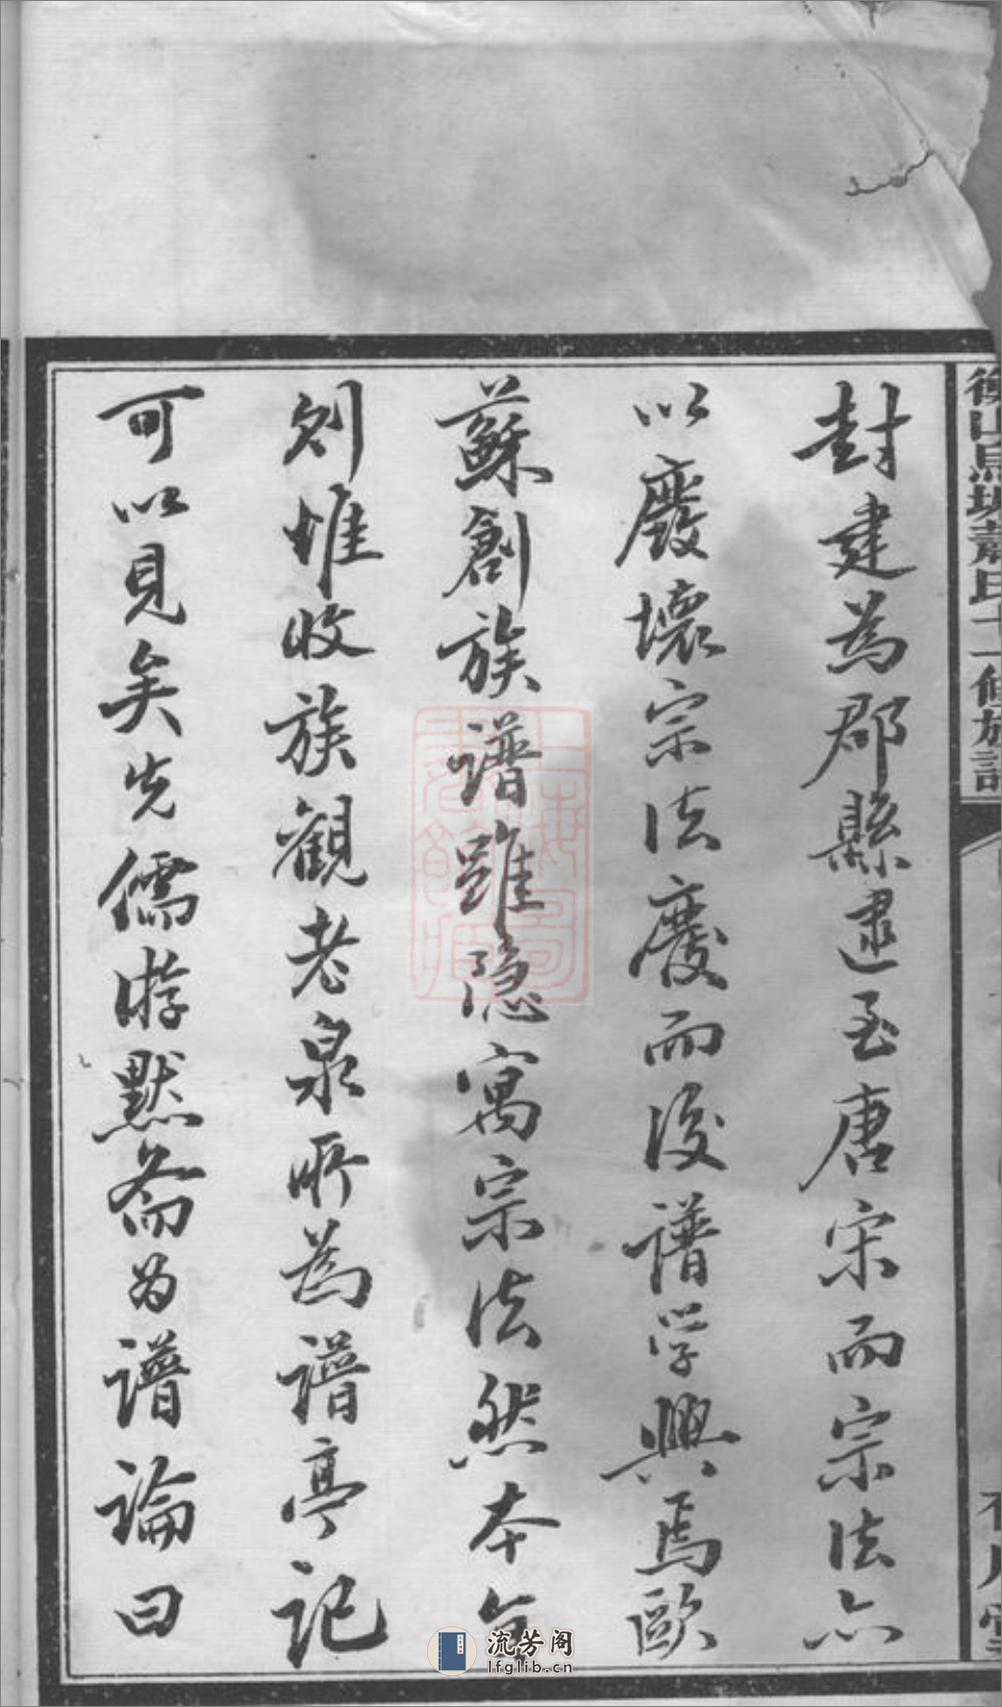 封建為郡縣逮至唐宋而宗法亦
以廢壞宗法廢而後譜学興焉歐
蘇創族譜雖隐寓宗法然本
則惟收族觀老泉所為譜亭記
可以見矣先儒游默斋为譜論曰
衡山馬坡蕭氏十一修族譜
流芳阁
lfglib.cn